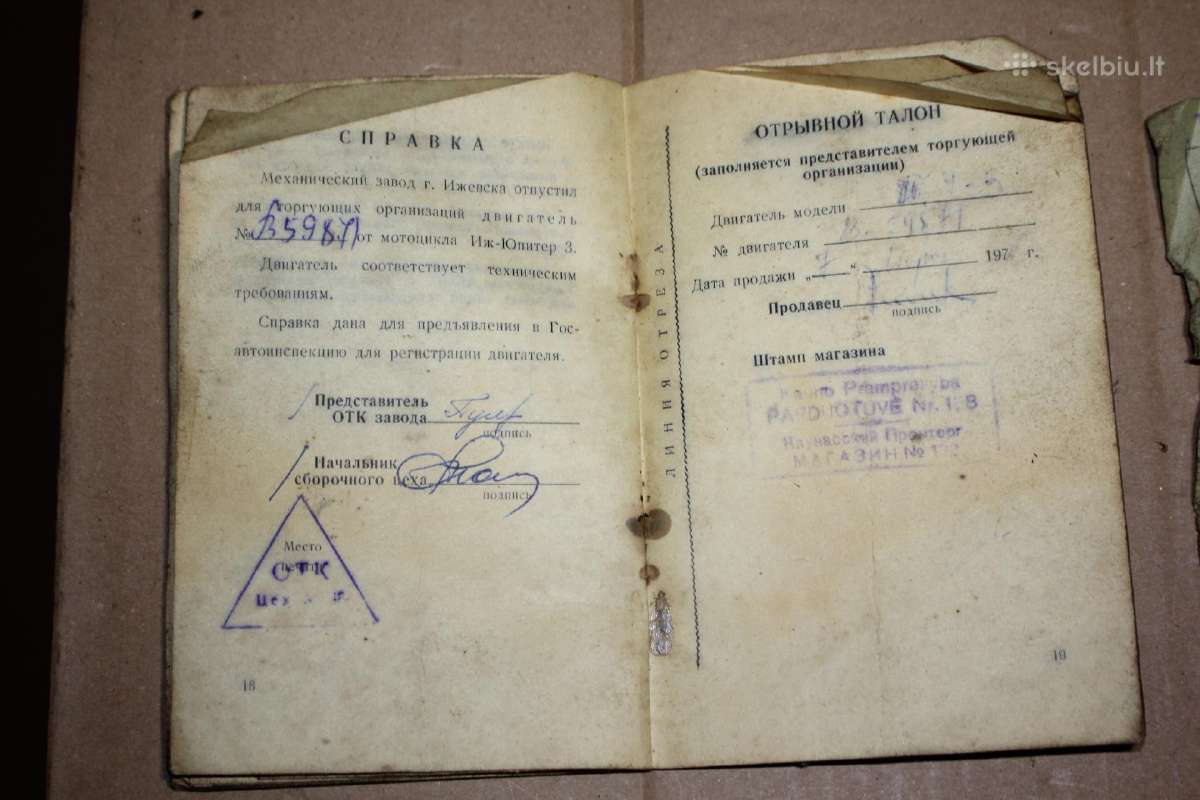 skelbiu.lt
СПРАВКА
Механический завод г. Ижевска отпустил
для торгующих организаций двигатель
№ В59871 от мотоцикла Иж-Юпитер 3.
Двигатель соответствует техническим
требованиям.
Справка дана для предъявления в Гос-
автоинспекцию для регистрации двигателя.
Представитель
ОТК завода
подпись
Начальник
сборочного цеха
подпись
Место
ОТК
Цех
18
ЛИНИЯ ОТРЕЗА
ОТРЫВНОЙ ТАЛОН
(заполняется представителем торгующей
организации)
Двигатель модели
№ двигателя
Дата продажи „ “ 197 г.
Продавец
подпись
Штамп магазина
Kauno Pramprekyba
PARDUOTUVĖ Nr.
Каунасский Промторг
МАГАЗИН №
19